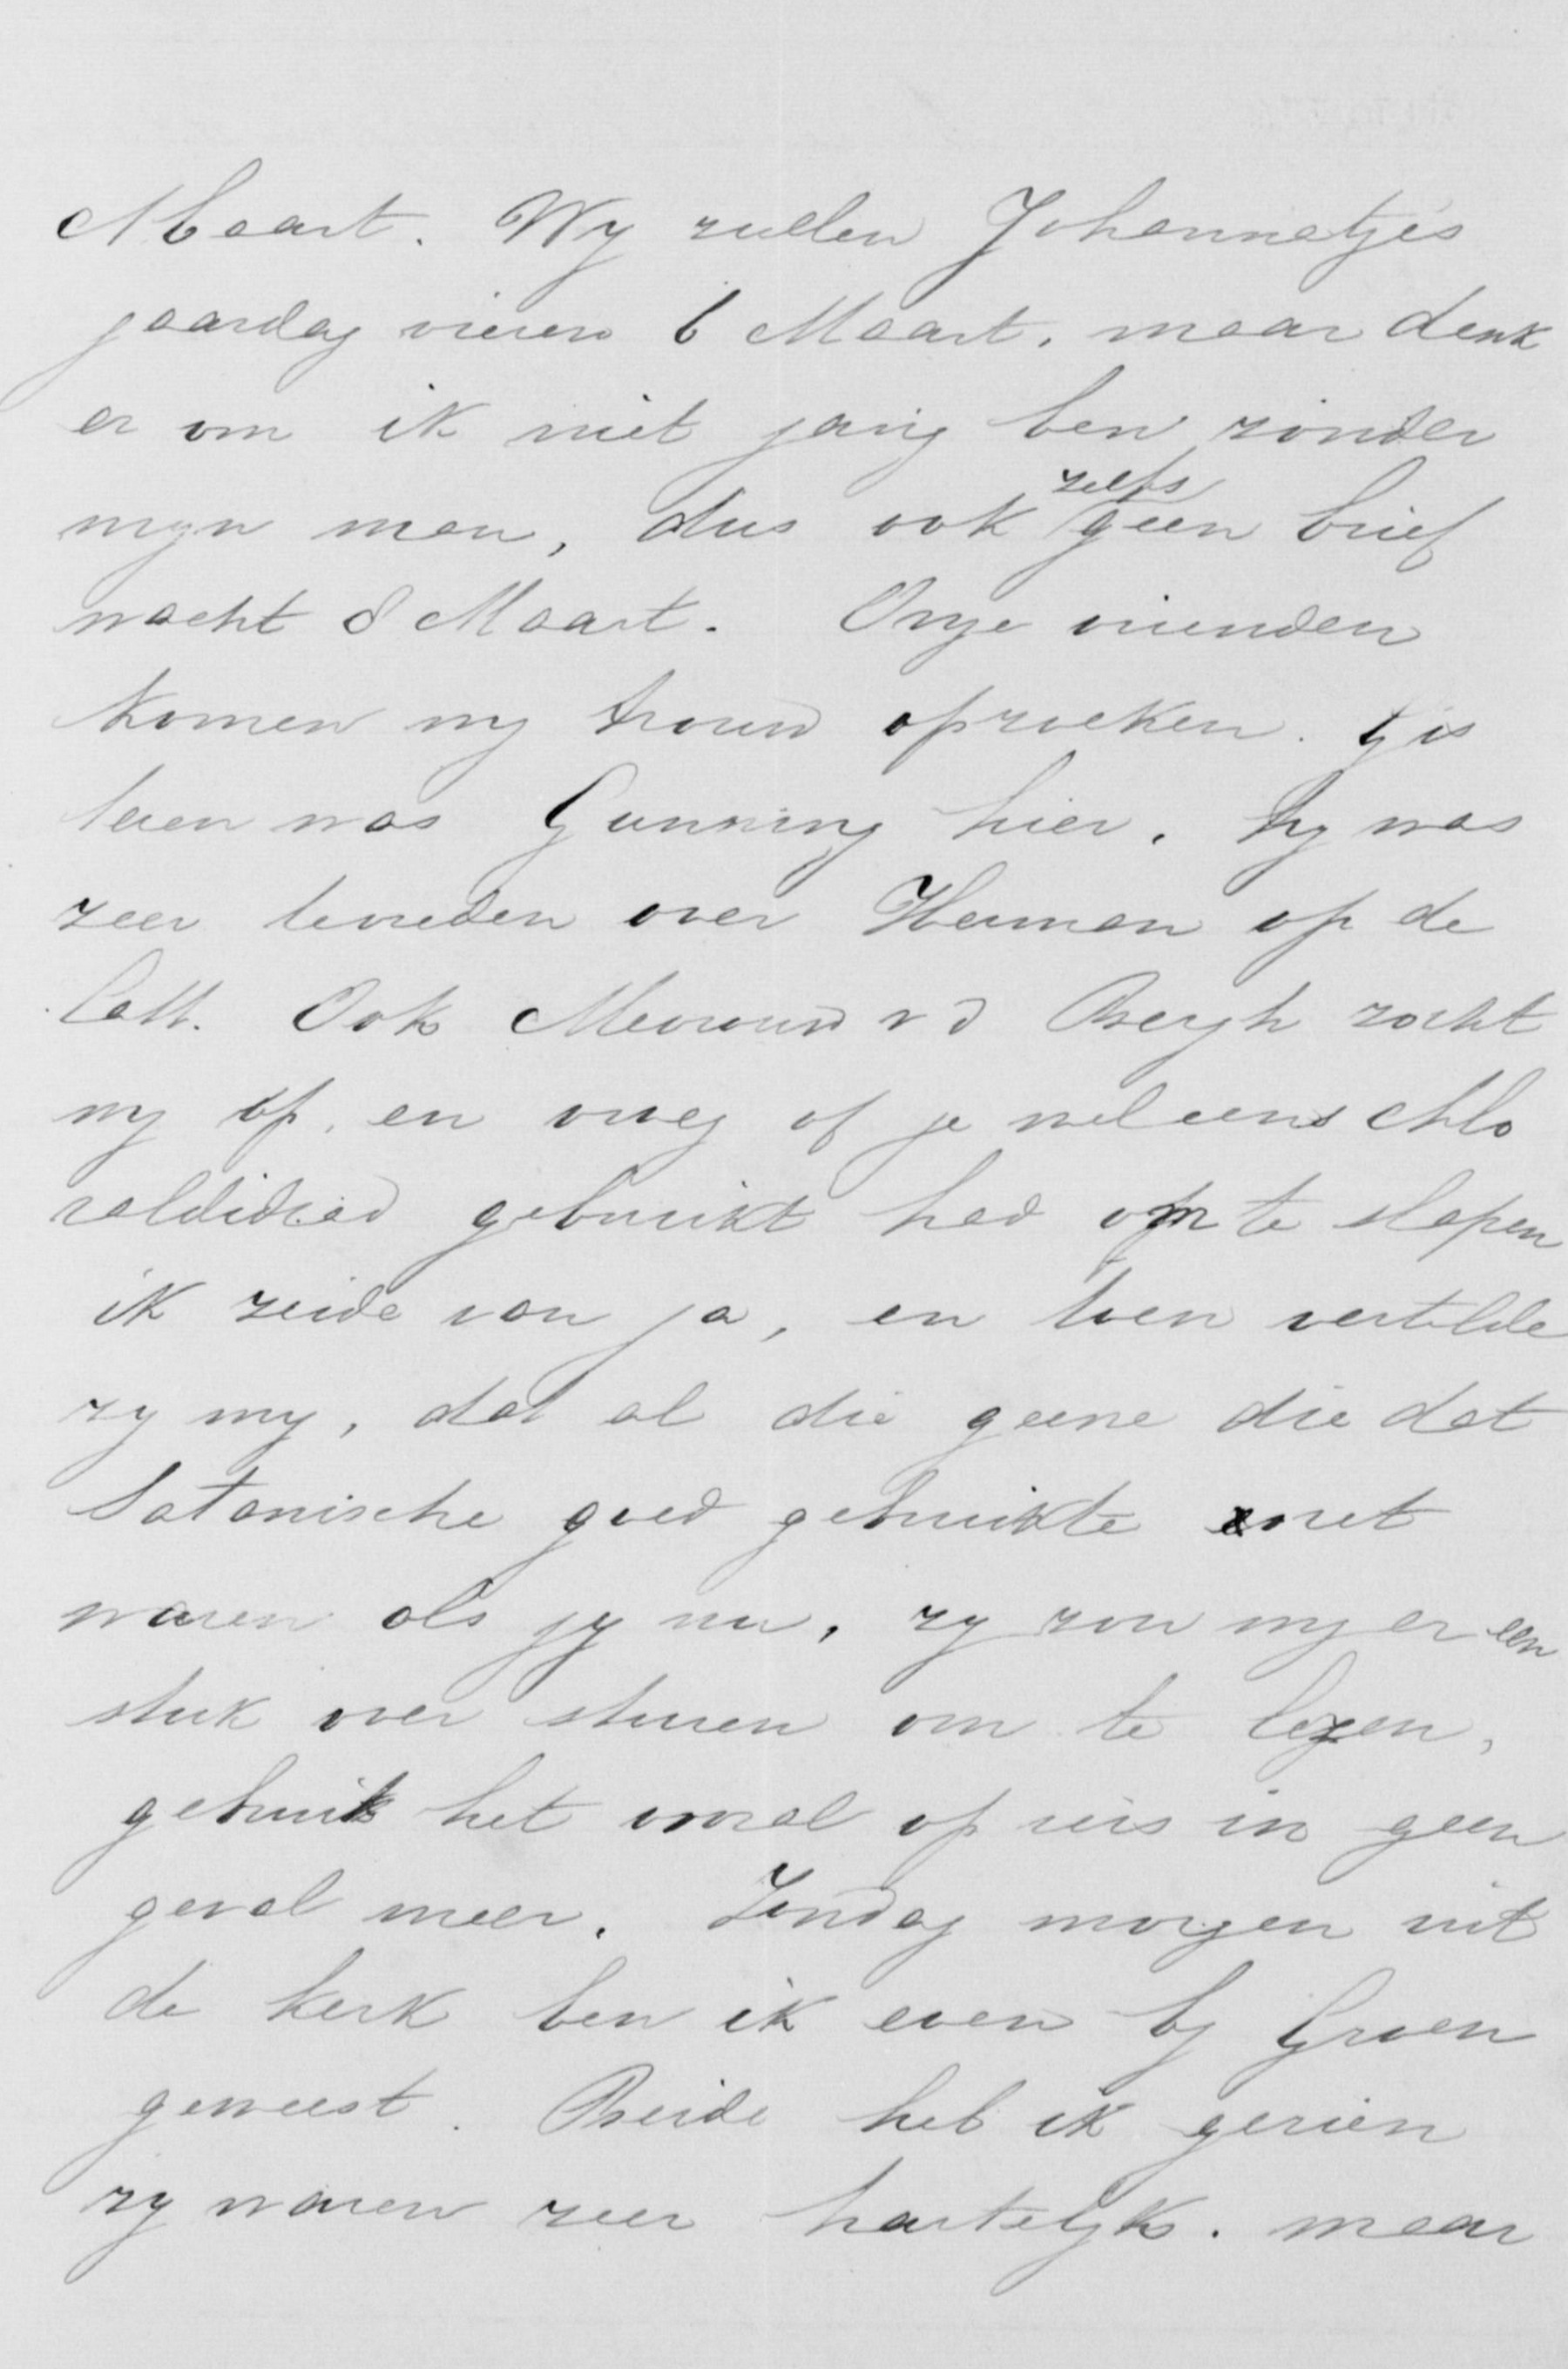 Maart. Wy zullen Johannetjes
jaardag vieren 6 Maart, maar denk
er om ik niet jarig ben zonder
myn man, dus ook zelfs geen brief
wacht 8 Maart. Onze vrienden
komen my trouw opzoeken. gis
teren was Gunning hier. hy was
zeer tevreden over Herman op de
Catt. Ook Mevrouw v d Bergh zocht
my op, en vroeg of je wel eens chlo
raldidraad gebruikt had om te slapen
ik zeide van ja, en toen vertelde
zy my, dat al die geene die dat
Satanische goed gebruikte net
waren als jy nu, zy zou my er een
stuk over sturen om te lezen,
gebruik het vooral op reis in geen
geval meer. Zondag morgen uit
de kerk ben ik even by Groen
geweest. Beide heb ik gezien
zy waren zeer hartelyk. maar